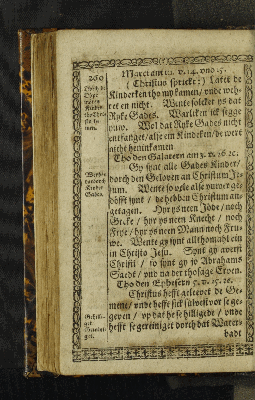 260
Marci am 10. v. 14. vnd 15.
( Christus sprickt: ) Latet de
Kinderken tho my kamen / vnde weh-
ret en nicht. Wente solcker ys dat
Ryke Gades. Warliken ick segge
yuw. Wol dat Ryke Gades nicht
entfanget / alse ein Kindeken / de wert
nicht henin kamen
Tho den Galatern am 3. v. 26 2c.
Gy synt alle Gades Kinder /
dorch den Gelouen an Christum Je-
sum. Wente so vele alse yuwer ge-
döfft synt / de hebben Christum an-
getagen. Hyr ys nen Jöde / noch
Greke / hyr ys nen Knecht / noch
Frye / hyr ys nen Mann noch Fru-
we. Wente gy synt all thomahl ein
in Christo Jesu. Synt gy auerst
Christi / so synt gy jo Abrahams
Saedt / vnd na der thosage Eruen.
Tho den Ephesern 5. v. 25. 2c.
Christus hefft geleuet de Ge-
mene / vnde hefft sick süluest vor se ge-
geuen / vp dat he se hilligede / vnde
hefft se gereiniget dorch dat Water-
badt
Kinder
Gades.